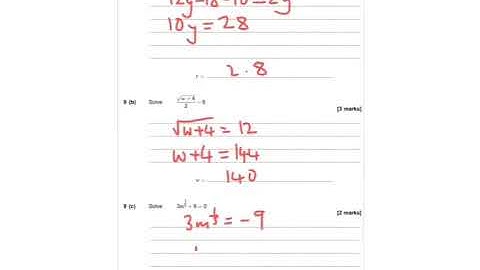 12y-18-10=2y
10y = 28
2.8
9 (b) Solve √w+4/2 = 6
[3 marks]
√w+4 = 12
w+4 = 144
140
9 (c) Solve
[2 marks]
3m^⅓ = -9